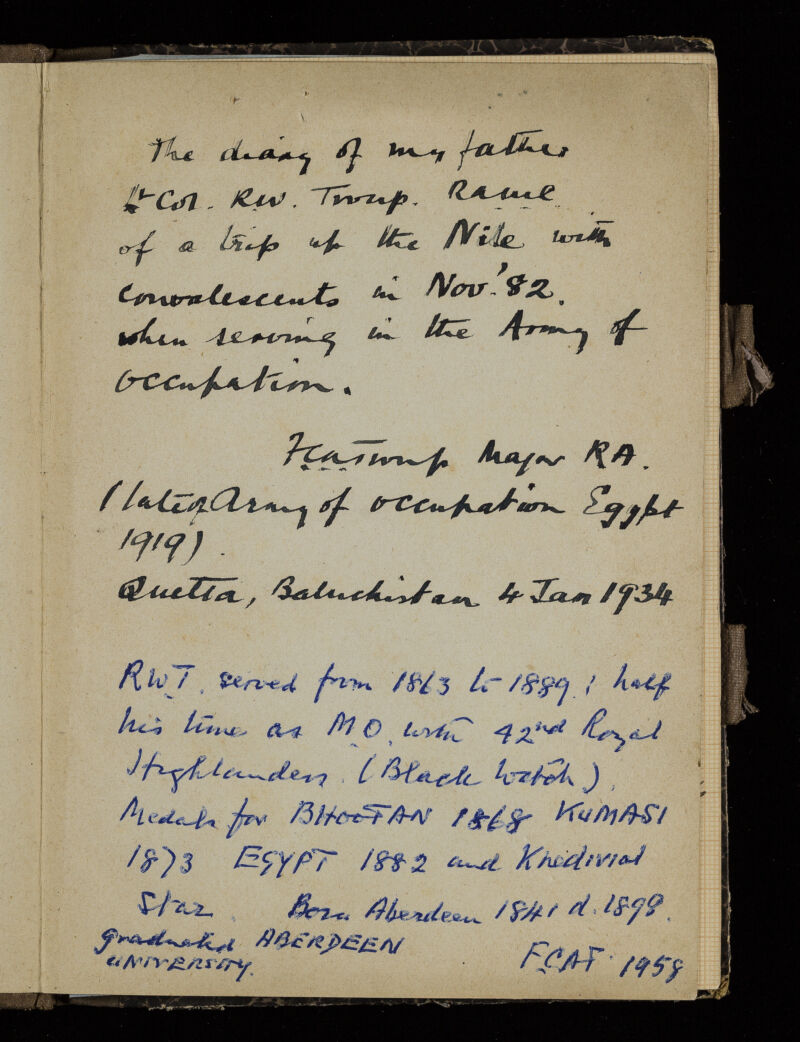 The diary of my father
Lt Col. R.W. Troup. RAMC
of a trip up the Nile with
Convalescents in Nov. '82.
when serving in the Army of
Occupation.
FCATroup Major RA.
(late of Army of Occupation Egypt
1919).
Quetta, Baluchistan 4 Jan 1934
RWT. served from 1863 to 1889; half
his time as MO. with 42nd Royal
Highlanders. (Black Watch).
Medals for BHOOTAN 1868 KUMASI
1873 EGYPT 1882 and Khedivial
Star. Born Aberdeen 1841 d. 1899.
graduated ABERDEEN
UNIVERSITY.
FCAT. 1958